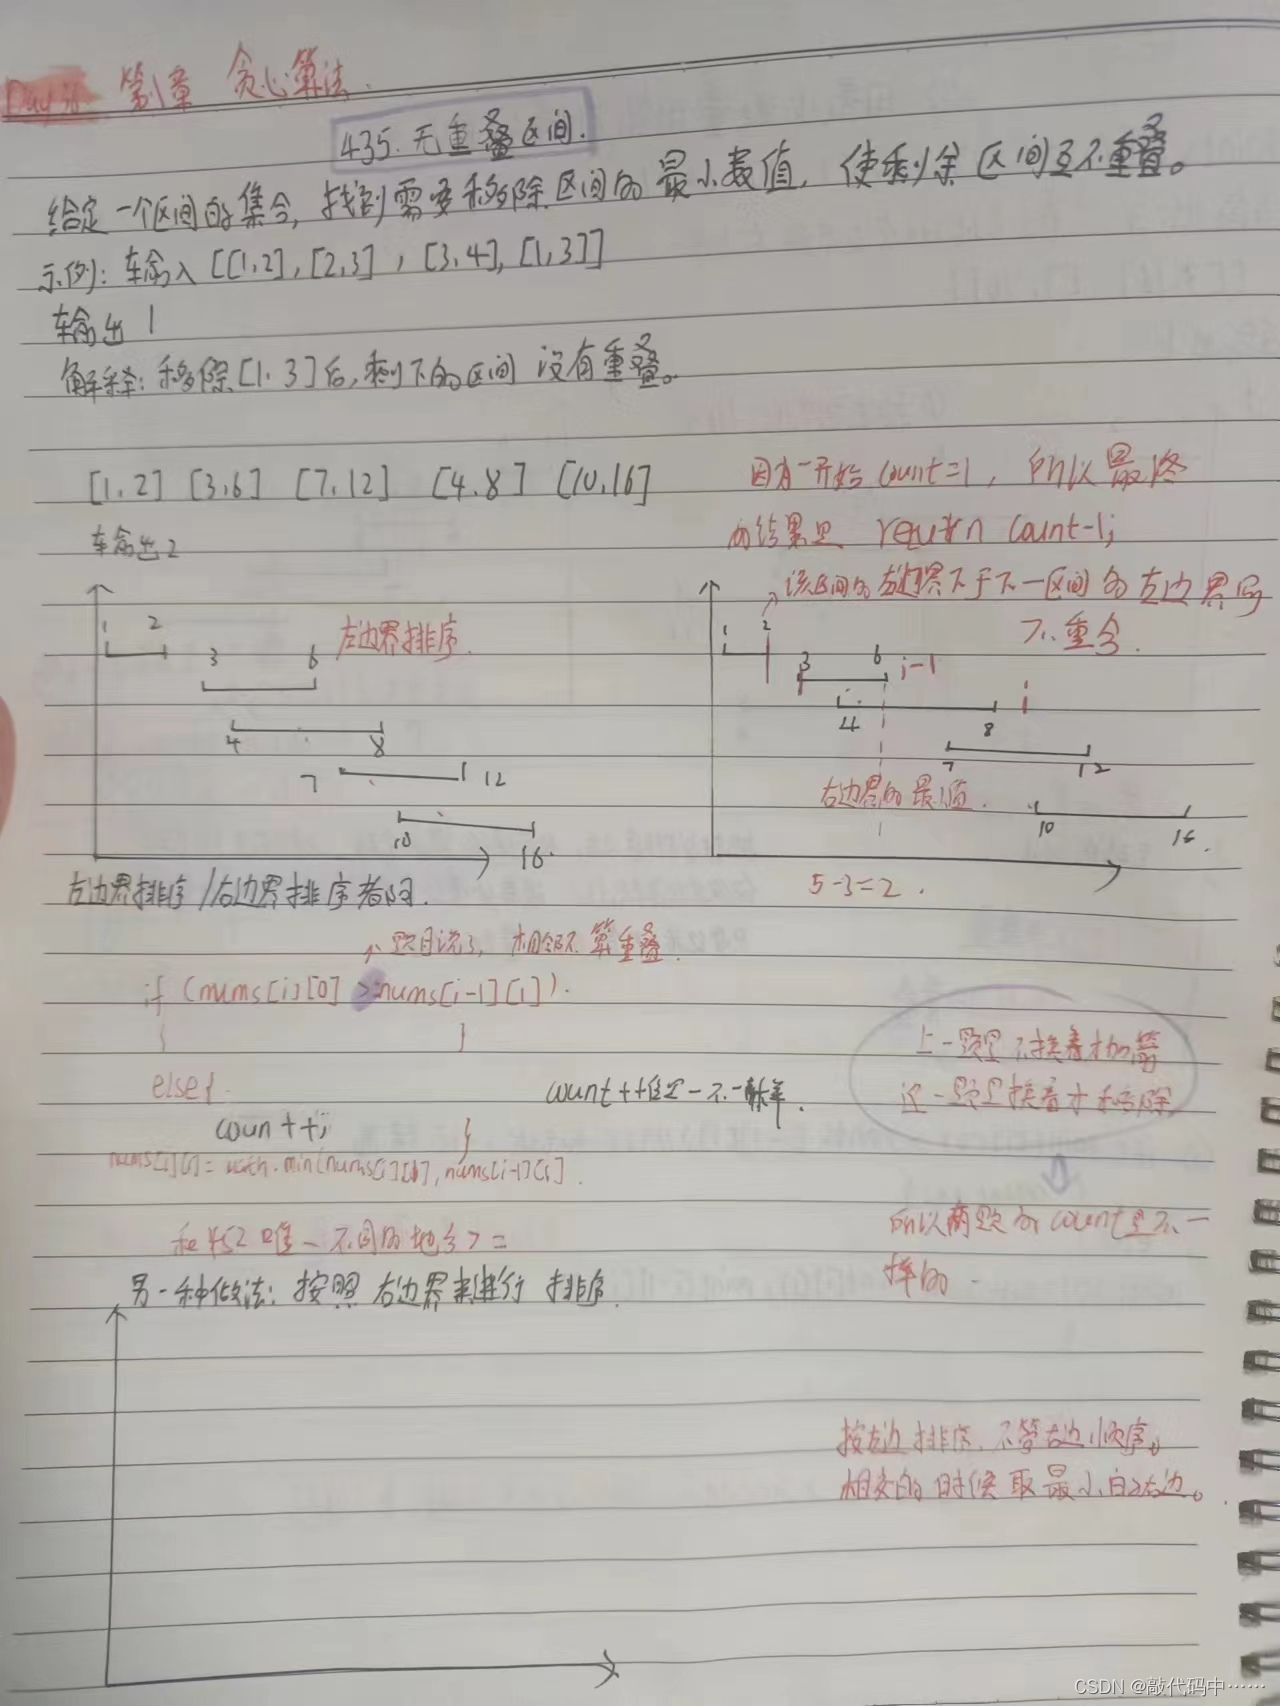 第八章 贪心算法.
435.无重叠区间.
给定一个区间的集合,找到需要移除区间的最小数值,使剩余区间互不重叠。
示例:输入[[1,2],[2,3],[3,4],[1,3]]
输出 1
解释:移除[1,3]后,剩下的区间 没有重叠。
[1,2] [3,6] [7,12] [4,8] [10,16]
输出2
因为一开始count=1, 所以最终
的结果是 return count-1;
1 2
3 6
左边界排序.
4 8
7 12
10 16.
该区间的右边界小于下一区间的左边界 则
不重合.
1 2
3 6 i-1
4 8 i
7 12
右边界的最小值.
10 16.
5-3=2.
左边界排序/右边界排序都可.
题目说了,相邻不算重叠.
if (nums[i][0] >=nums[i-1][1]).
{ }
else{
count++;
}
nums[i][1]=math.min(nums[i][1],nums[i-1][1].
count++但是一不一样.
上一题是不挨着才加箭
这一题是挨着才移除
所以两题的count是不一
样的.
和452唯一不同的地方 > =
另一种做法: 按照 右边界来进行 排序.
按左边排序,不管右边顺序。
相交的时候取最小的右边。
CSDN @敲代码中……